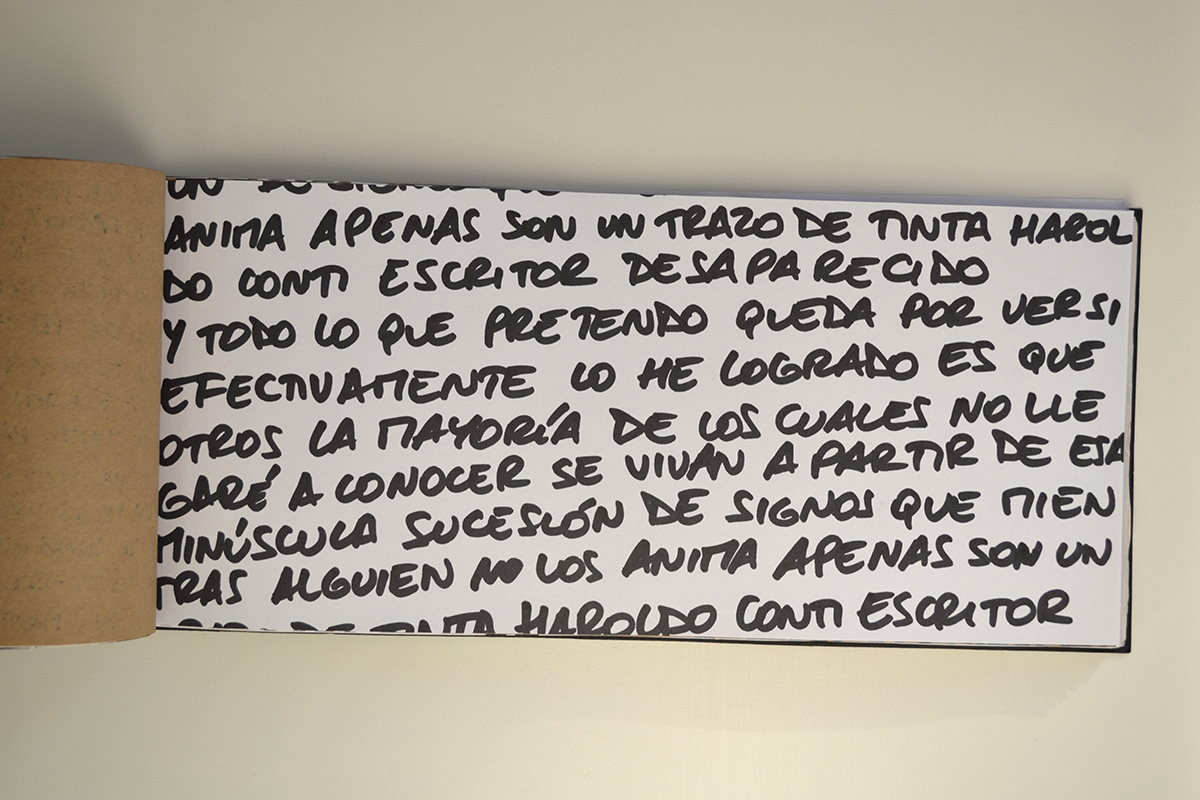 ÓN DE SIGNOS QUE
ANIMA APENAS SON UN TRAZO DE TINTA HAROL
DO CONTI ESCRITOR DESAPARECIDO
Y TODO LO QUE PRETENDO QUEDA POR VER SI
EFECTIVAMENTE LO HE LOGRADO ES QUE
OTROS LA MAYORÍA DE LOS CUALES NO LLE
GARÉ A CONOCER SE VIVAN A PARTIR DE ESA
MINÚSCULA SUCESIÓN DE SIGNOS QUE MIEN
TRAS ALGUIEN NO LOS ANIMA APENAS SON UN
DE TINTA HAROLDO CONTI ESCRITOR